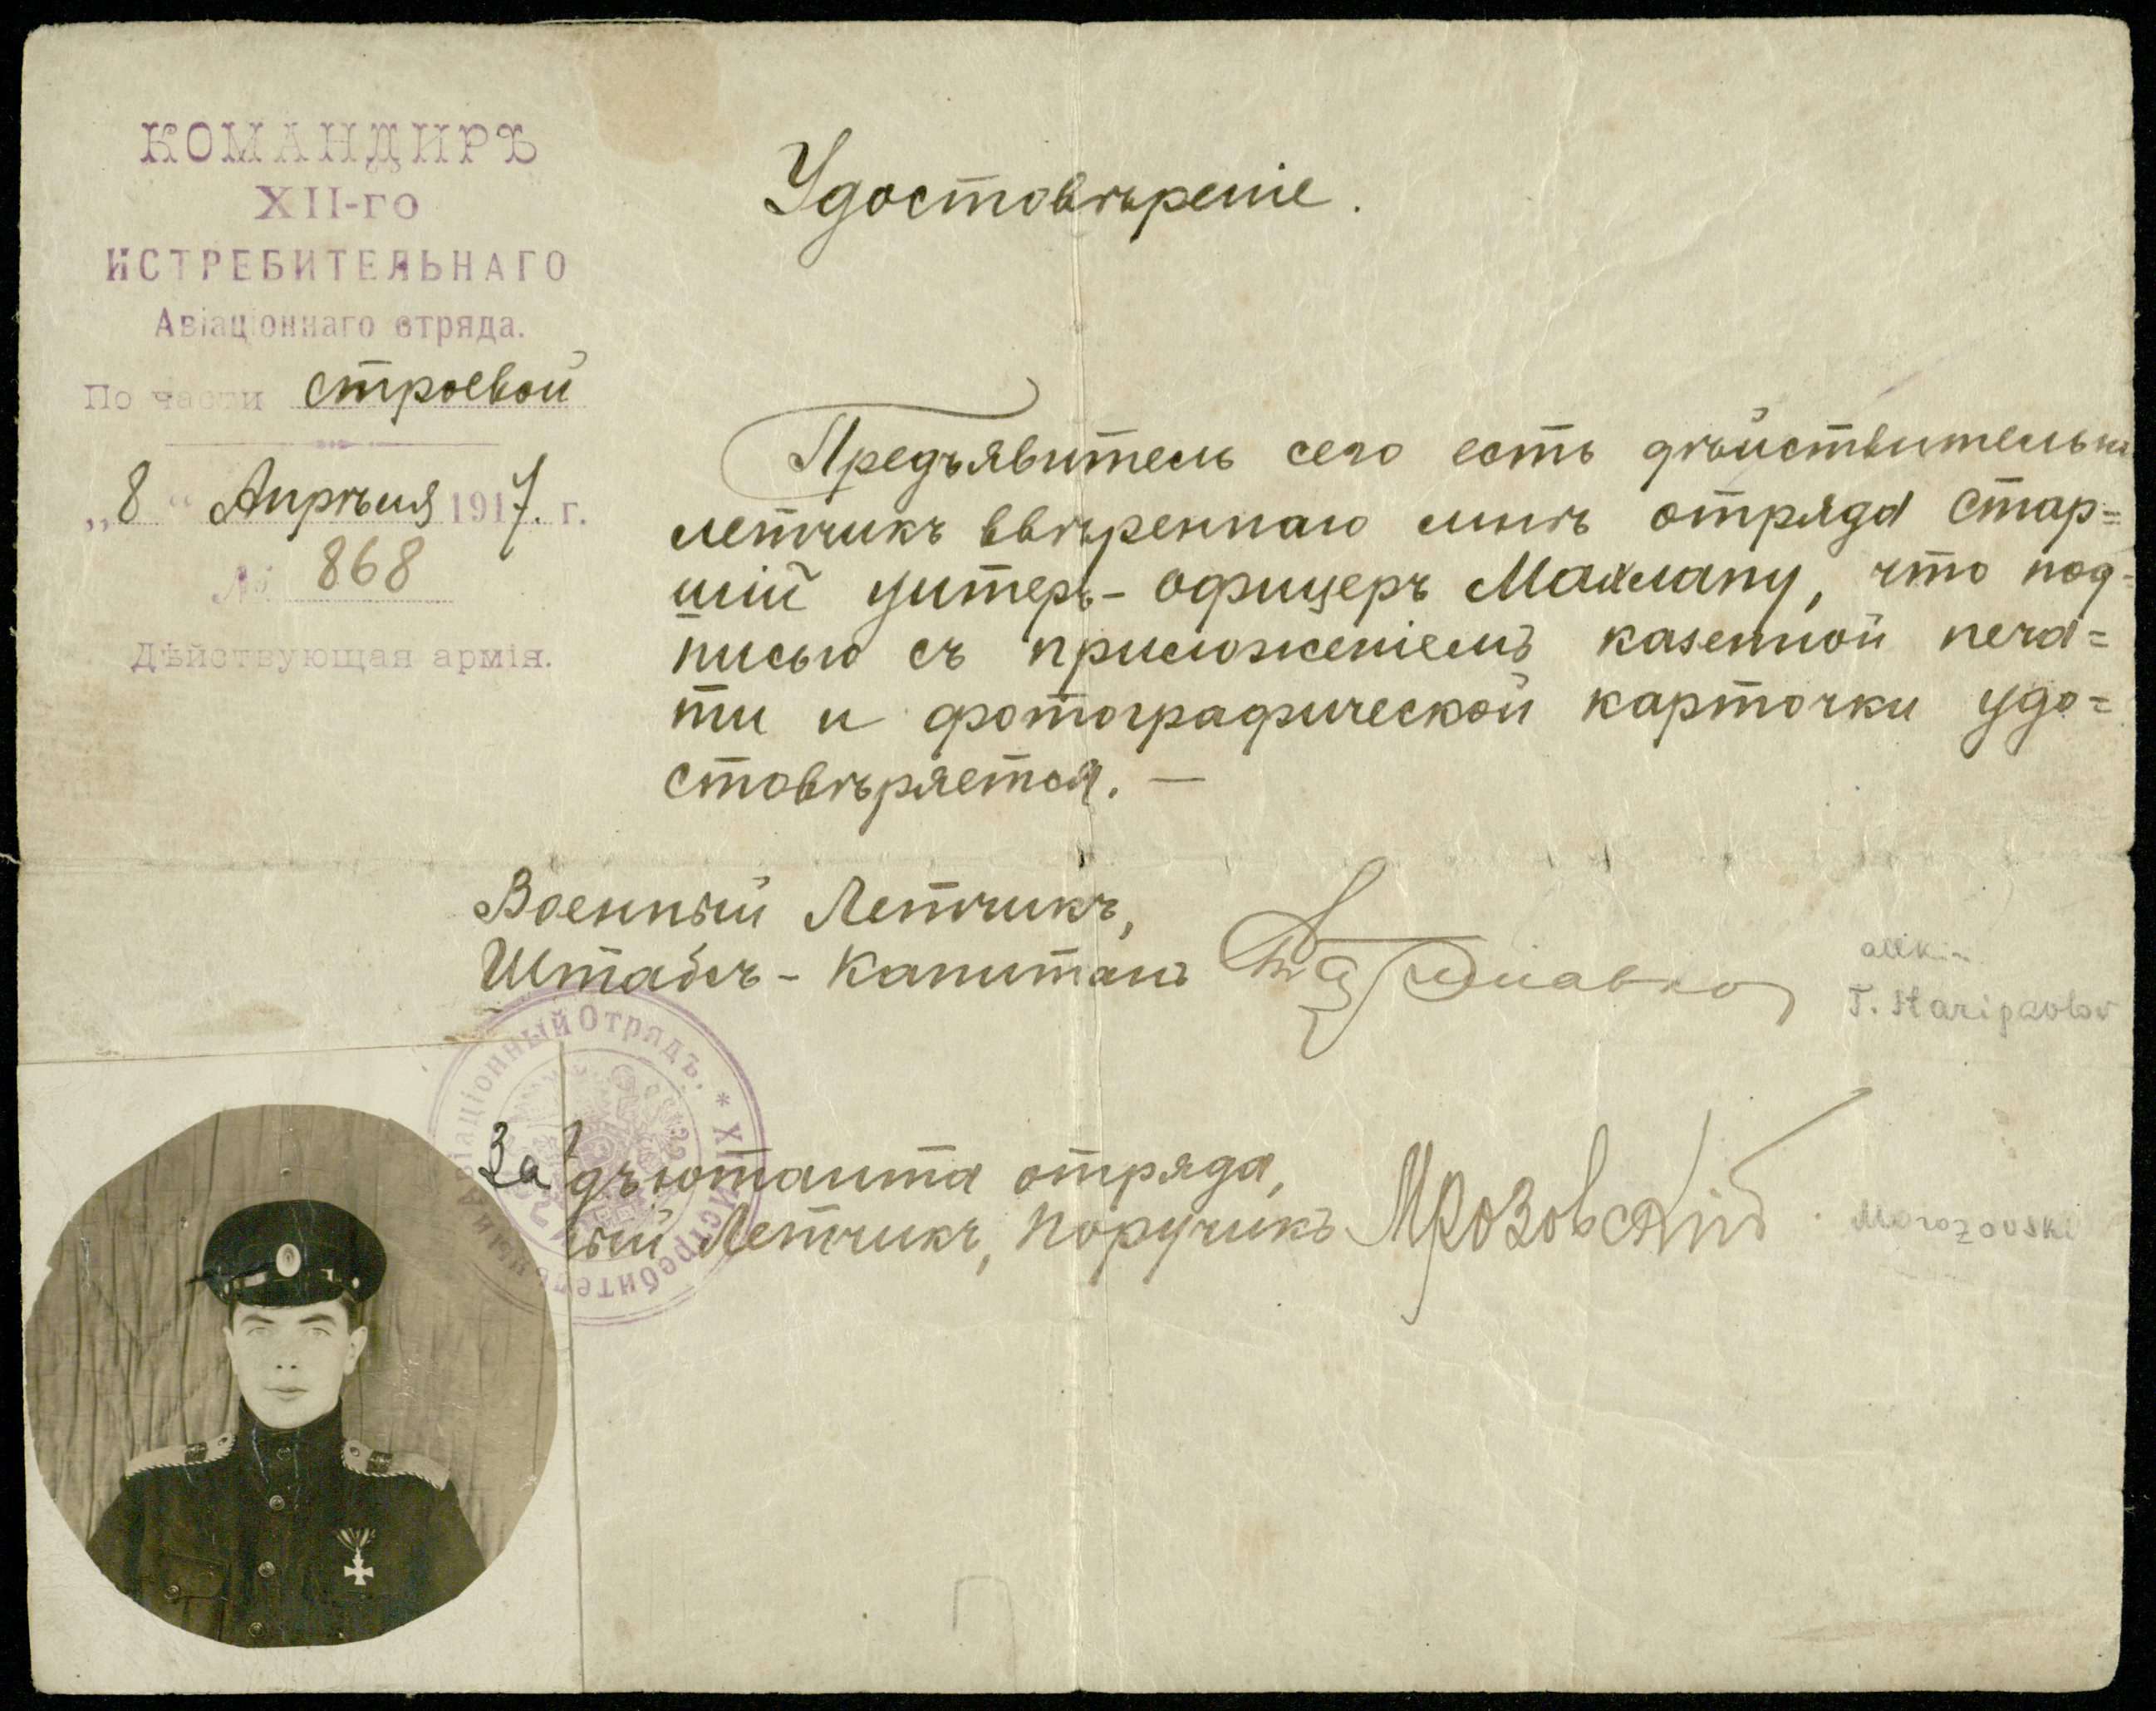 КОМАНДИРЪ
XII-го
ИСТРЕБИТЕЛЬНАГО
Авіаціоннаго отряда.
По части строевой
„8“ Апрѣля 1917. г.
№ 868
Дѣйствующая армія.
Удостовѣреніе.
Предъявитель сего есть дѣйствительно
летчикъ ввѣреннаго мнѣ отряда стар=
шій унтеръ-офицеръ Махлапу, что под=
писью съ приложеніемъ казенной печа=
ти и фотографической карточки удо=
стовѣряется. —
Военный Летчикъ,
Штабсъ-Капитанъ
allkiri
T. Staripavlov
Авіаціонный Отрядъ. * XII Истребительный
За дъютанта отряда,
ый Летчикъ, Поручикъ Мрозовскій
Morozovski